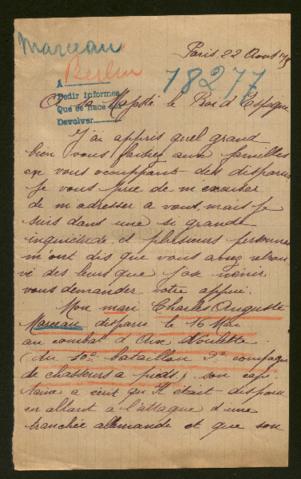 Marceau
Berlin
Paris 22 Août
18277
A
Pedir informes
Que se hace
Devolver
A sa Majesté le Roi d'Espagne
J'ai appris quel grand
bien vous faites aux familles
en vous occupant des disparus
je vous prie de m'excuser
de m'adresser a vous, mais je
suis dans une si grande
inquiétude et plusieurs personnes
m'ont dis que vous avez retrou
vé des leurs que j'ose venir
vous demander votre appui.
Mon mari Charles Auguste
Marceau disparu le 16 Mai
au combat d'Aix Noulette
(du 10e bataillon 3e compagie
de chasseurs a pieds) son capi
taine a écrit qu'il était disparu
en allant à l'attaque d'une
tranchée allemande et que son